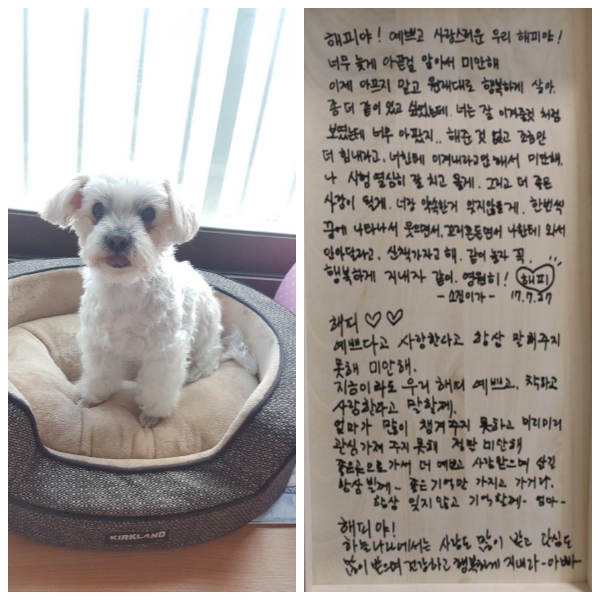 KIRKLAND
해피야! 예쁘고 사랑스러운 우리 해피야!
너무 늦게 아픈걸 알아서 미안해
이제 아프지 말고 원래대로 행복하게 살아.
좀 더 같이 있고 싶었는데. 너는 잘 이겨줄것 처럼
보였는데 너무 아팠지.. 해준 것 없고 조금만
더 힘내라고, 너한테 이겨내라고만 해서 미안해.
나 시험 열심히 잘 치고 올게. 그리고 더 좋은
사람이 될게. 너랑 약속한거 잊지않을게. 한번씩
꿈에 나타나서 웃으면서, 꼬리흔들면서 나한테 와서
안아달라고, 산책가자고 해. 같이 놀자 꼭.
행복하게 지내자 같이. 영원히! 해피
17.7.27
해피 ♡♡
예쁘다고 사랑한다고 항상 말해주지
못해 미안해.
지금이라도 우리 해피 예쁘고, 착하고
사랑한다고 말할게.
엄마가 많이 챙겨주지 못하고 미리미리
관심가져 주지 못해 정말 미안해
좋은곳으로 가서 더 예쁘고 사랑받으며 살길
항상 빌께~ 좋은 기억만 가지고 가거라.
항상 잊지 않고 기억할께- 엄마-
해피야!
하늘나라에서는 사랑도 많이 받고 관심도
많이 받으며 건강하고 행복하게 지내라-아빠-